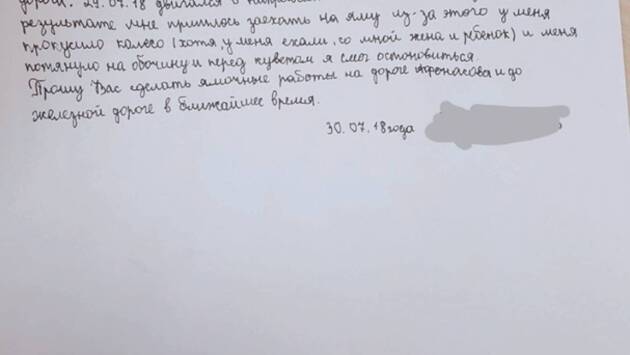 дороги. 29.07.18 двигался в
результате мне пришлось заехать на яму из-за этого у меня
прокусило колесо (хотя, у меня ехали, со мной жена и ребёнок) и меня
потянуло на обочину и перед куветом я смог остановиться.
Прошу Вас сделать ямочные работы на дороге и до
железной дороге в ближайшее время.
30.07.18 года